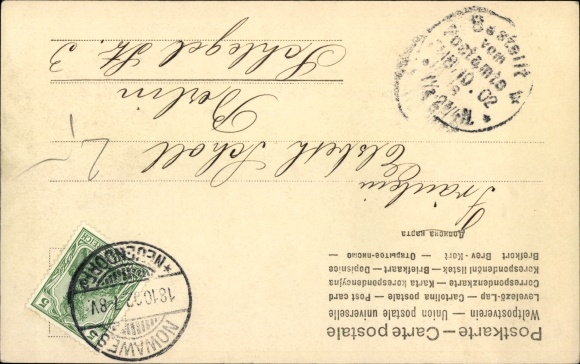 Postkarte — Carte postale
Weltpostverein — Union postale universelle
Levelező-Lap — Cartolina postale — Post card
Correspondenzkarte — Karta korespondencyjna
Korespondenční lístek — Briefkaart — Dopisnice
Brefkort — Brev-Kort — Открытое-письмо —
Дописна карта
REICH
5
NOWAWES
18.10.02. 7-8V.
*NEUENDORF*
Fräulein
Elsbeth Scholl
Berlin
Schlegel Str. 3
Bestellt
vom
Postamte 4
18.10.02
1¼-2¼N.